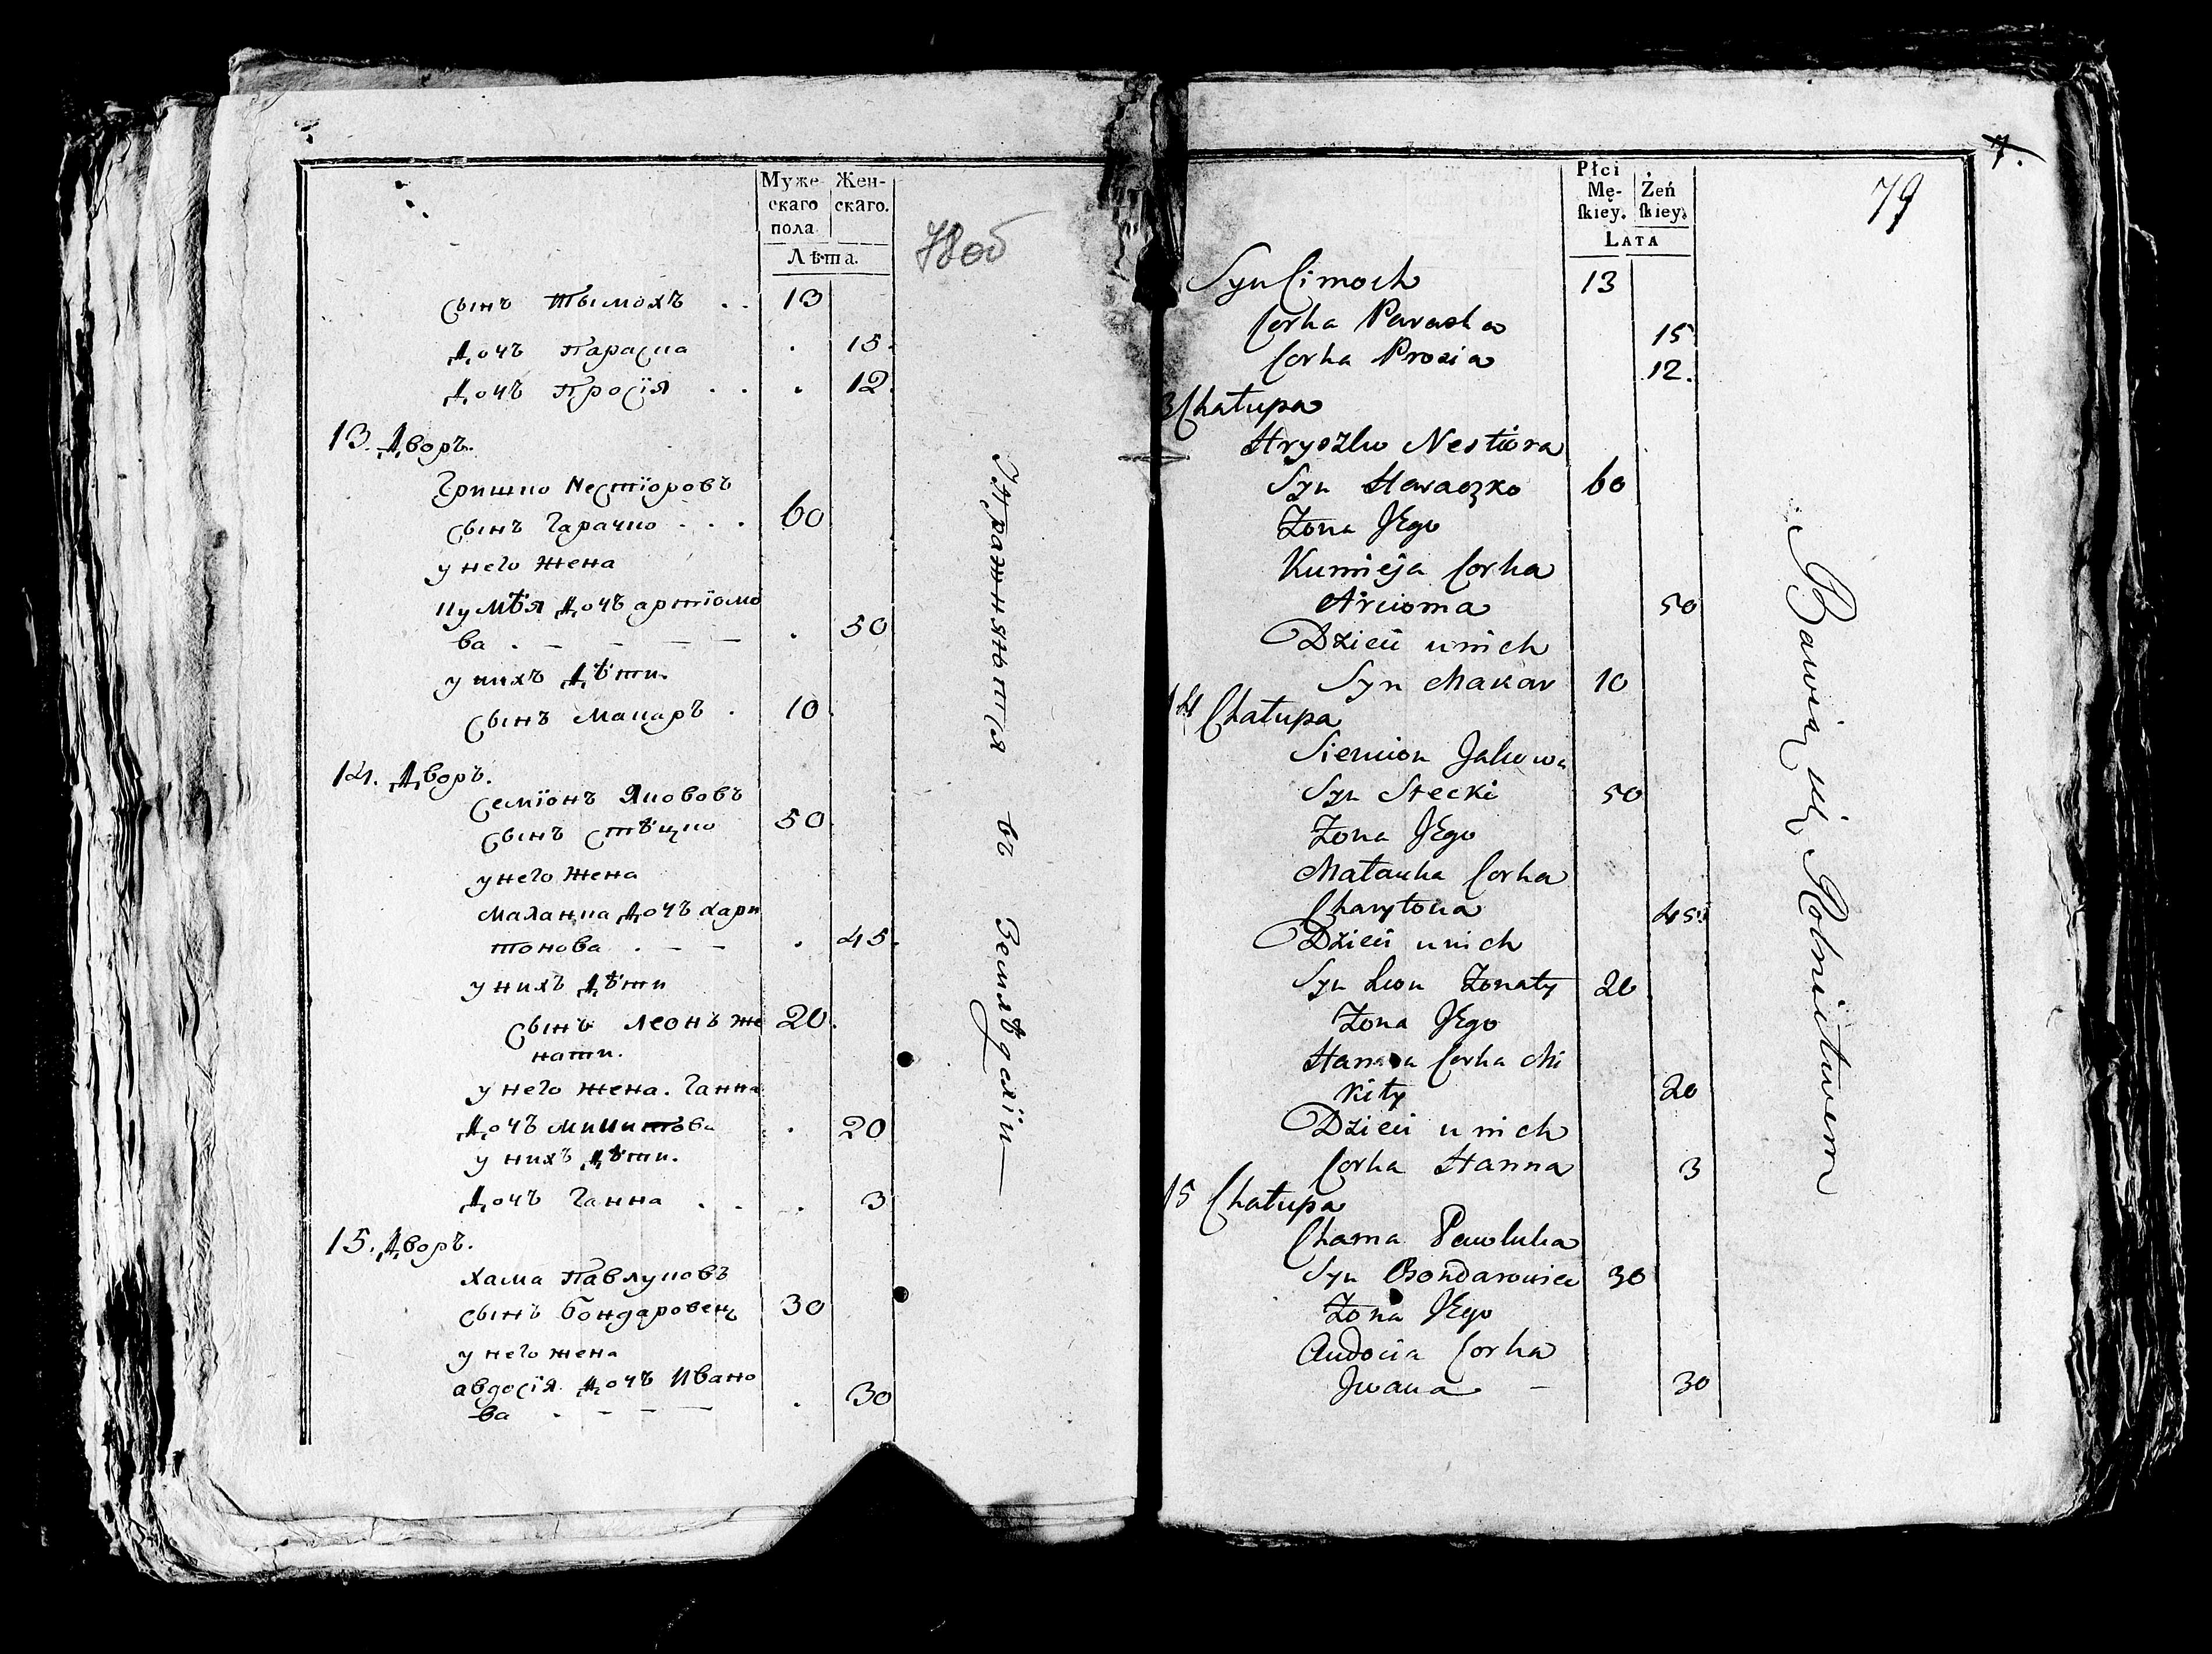 Муже-
скаго
пола.
Жен-
скаго.
Лѣта.
78об
сынъ тымохъ . . 13
дочъ параска . 15.
дочъ просїя . . . 12.
13. дворъ.
Гришко Нестїоровъ
сынъ Гарачко . . . 60
у него жена
кумѣя дочъ артїомо
ва . - - - - . 50
у нихъ дѣти.
сынъ макаръ . 10.
14. дворъ.
семїонъ Якововъ
сынъ стѣцко 50.
у него жена
маланка дочъ хари
тонова . - - . 45.
у нихъ дѣти
сынъ леонъ же 20.
нати.
у него жена. Ганна
дочъ микитова . 20
у нихъ дѣти.
дочъ Ганна . . . 3
15. дворъ.
хама Павлуковъ
сынъ бондаровец 30
у него жена
авдосїя дочъ Ивано
ва . - - - . 30
упражняются въ Земледелїи
Płci
Mę-
ſkiey.
Żeń
ſkiey.
LATA
7.
79
Syn Cimoch 13
Corka Paraska 15
Corka Prosia 12.
3 Chałupa
Hryszko Nestiora
Syn Haraczko 60
Żona Jego
Kumieja Corka
Arcioma 50
Dzieci u nich
Syn Makar 10
14 Chałupa
Siemion Jakowa
Syn Stecki 50
Żona Jego
Małanka Corka
Charytona 45.
Dzieci u nich
Syn Leon Żonaty 20
Żona Jego
Hanna Corka Mi
kity 20
Dzieci u nich
Corka Hanna 3
15 Chałupa
Chama Pawluka
Syn Bondarowiec 30
Żona Jego
Audocia Corka
Jwana - 30
Bawią się Rolnictwem